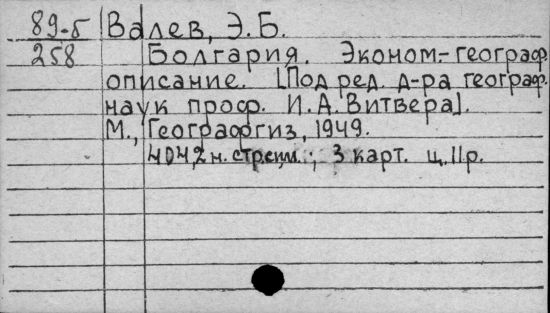 89-5 Валев, Э.Б.
258 Болгария. Эконом.-географ.
описание. [Под ред. д-ра географ.
наук проф. И.А.Витвера].
М., Географгиз, 1949.
3 карт. ц. 11р.